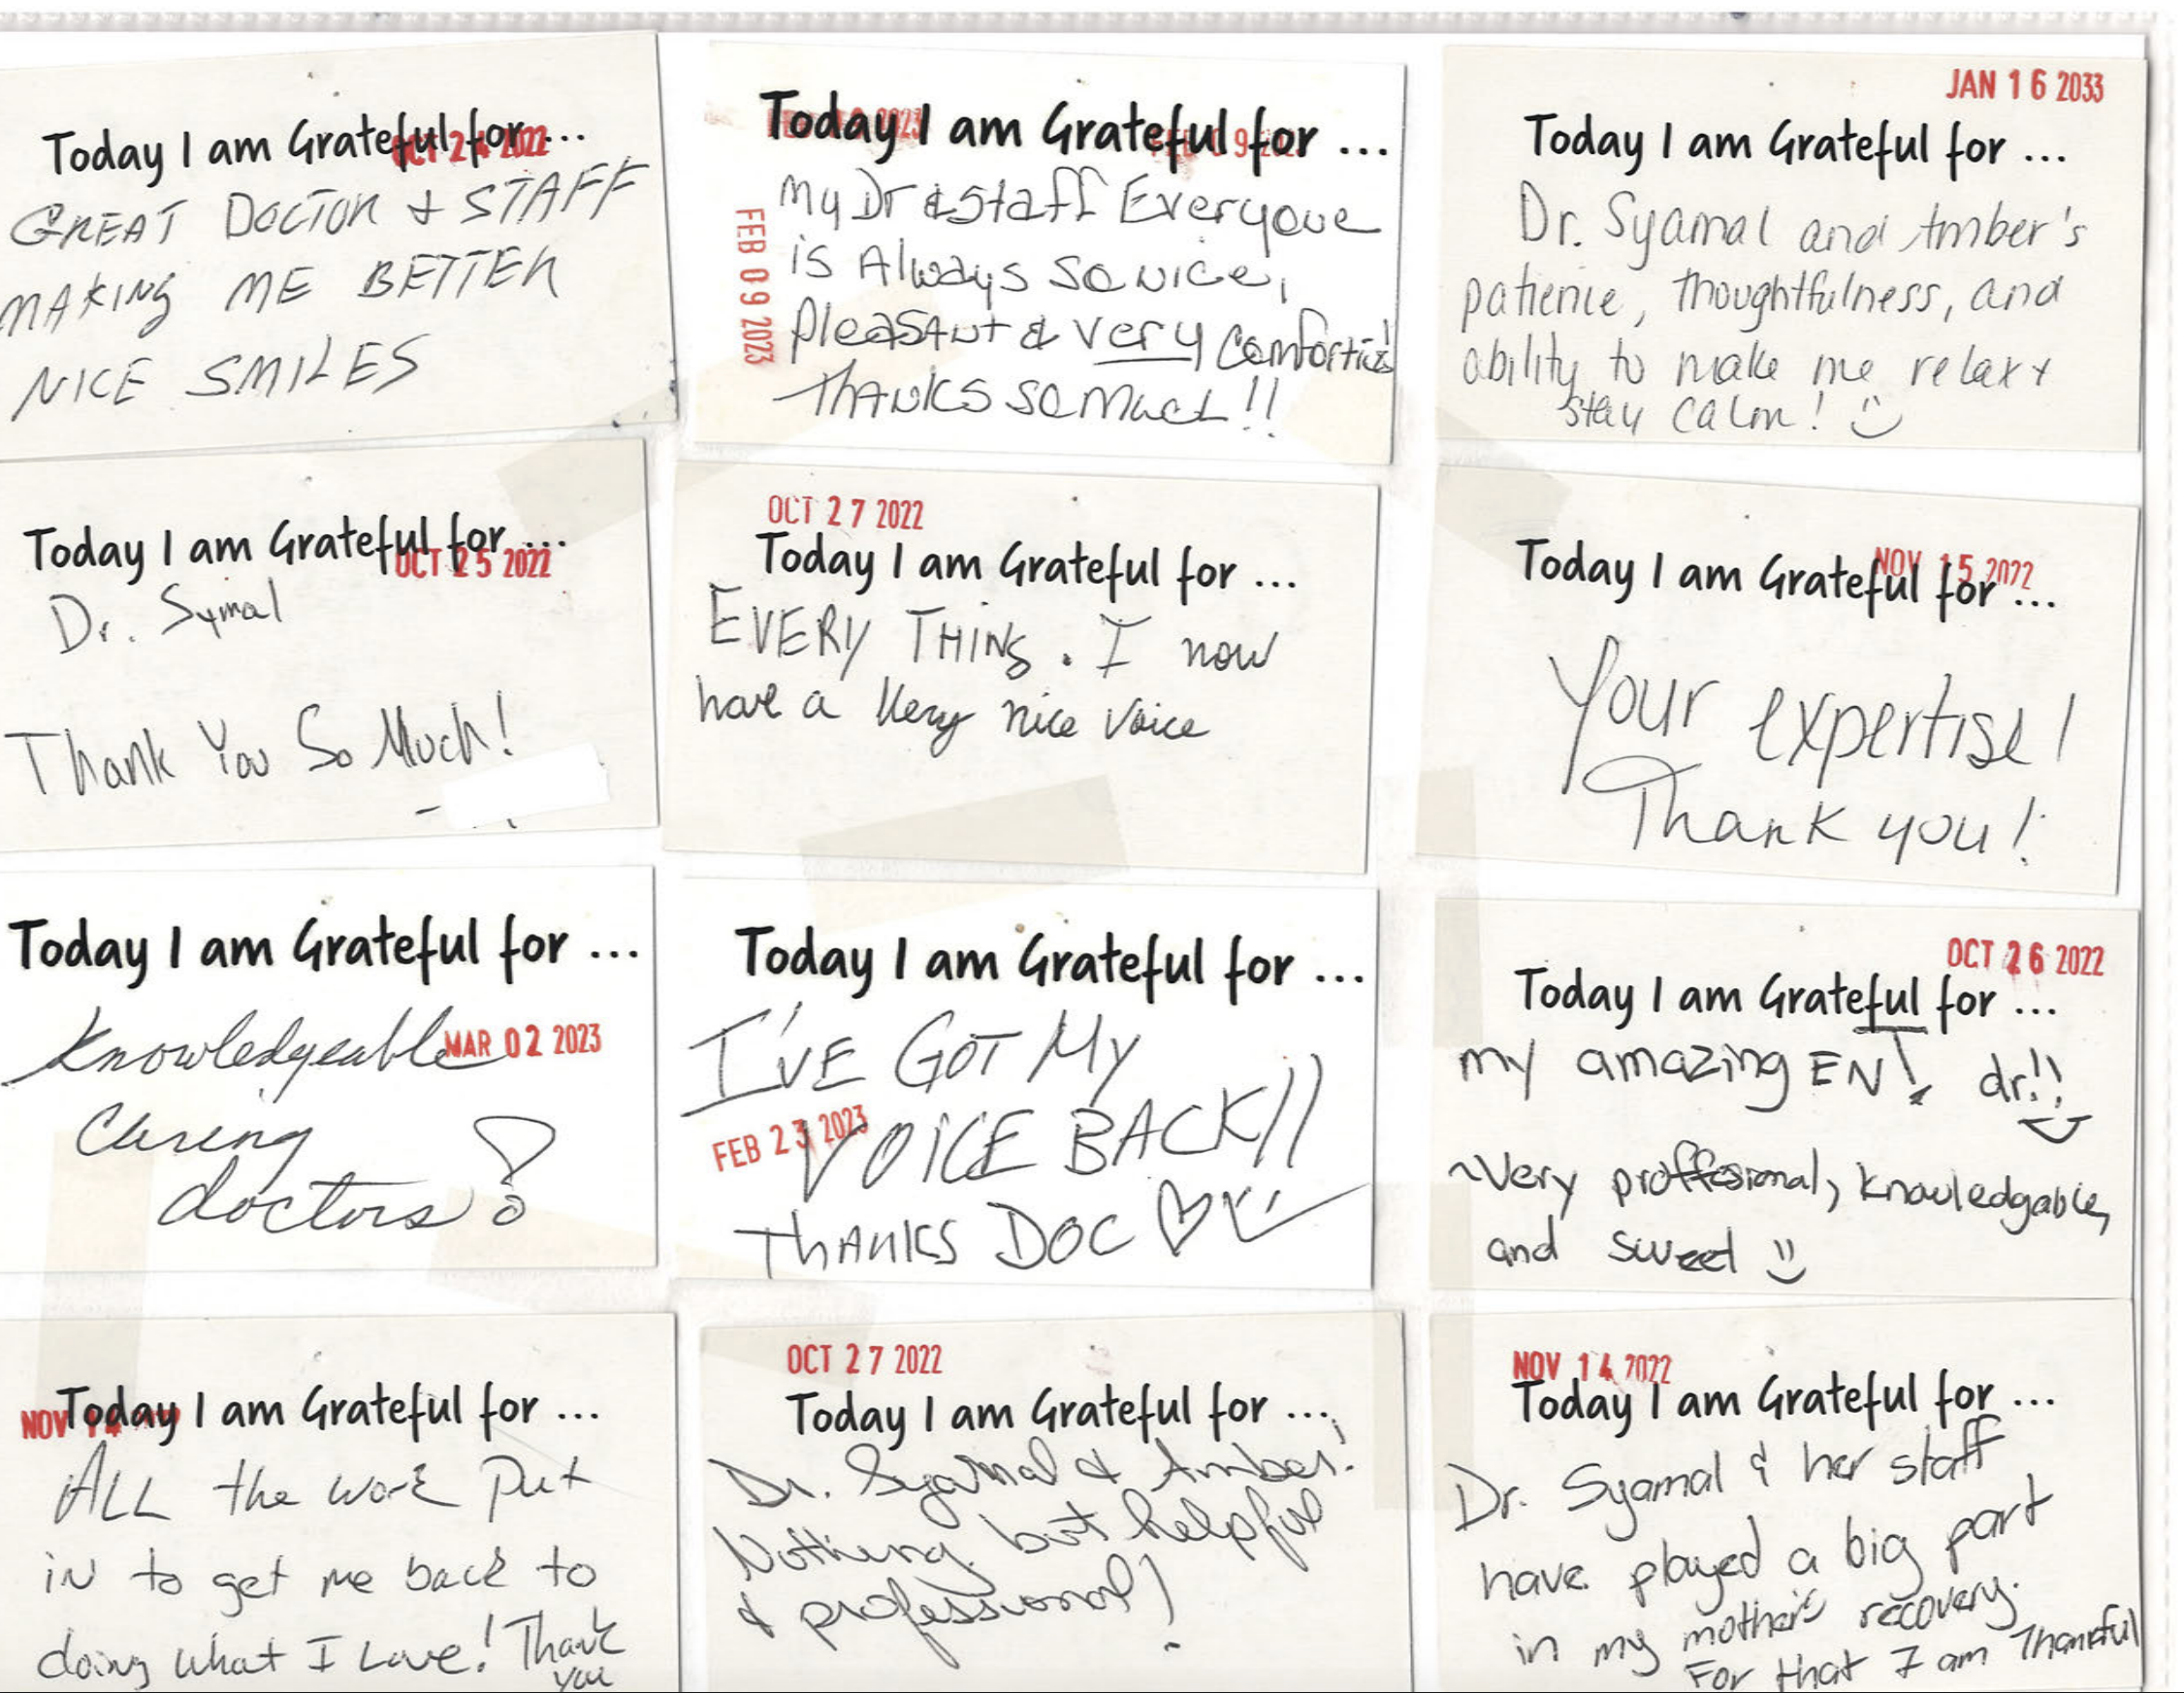 Today I am Grateful for ...
OCT 24 2022
GREAT DOCTOR & STAFF
MAKING ME BETTER
NICE SMILES
FEB 09 2023
Today I am Grateful for ...
My Dr & Staff Everyone
is Always so nice,
pleasant & very
Thanks so much!!
FEB 09 2023
JAN 16 2033
Today I am Grateful for ...
Dr. Syamal and Amber's
patience, thoughtfulness, and
ability to make me relax +
stay calm!
Today I am Grateful for ...
OCT 25 2022
Dr. Symal
Thank You So Much!
OCT 27 2022
Today I am Grateful for ...
EVERY THING. I now
have a Very nice Voice
NOV 15 2022
Today I am Grateful for ...
Your expertise!
Thank you!
Today I am Grateful for ...
Knowledgeable
MAR 02 2023
Caring
doctors!
Today I am Grateful for ...
I'VE GOT MY
FEB 23 2023
VOICE BACK!!
THANKS DOC
OCT 26 2022
Today I am Grateful for ...
my amazing ENT dr!!
~Very proffesional, knowledgable,
and sweet
Today I am Grateful for ...
NOV 14
ALL the work Put
in to get me back to
doing what I Love! Thank
you
OCT 27 2022
Today I am Grateful for ...
Dr. Syamal & Amber!
Nothing but helpful
& professional!
NOV 14 2022
Today I am Grateful for ...
Dr. Syamal & her staff
have played a big part
in my mother's recovery.
For that I am Thankful